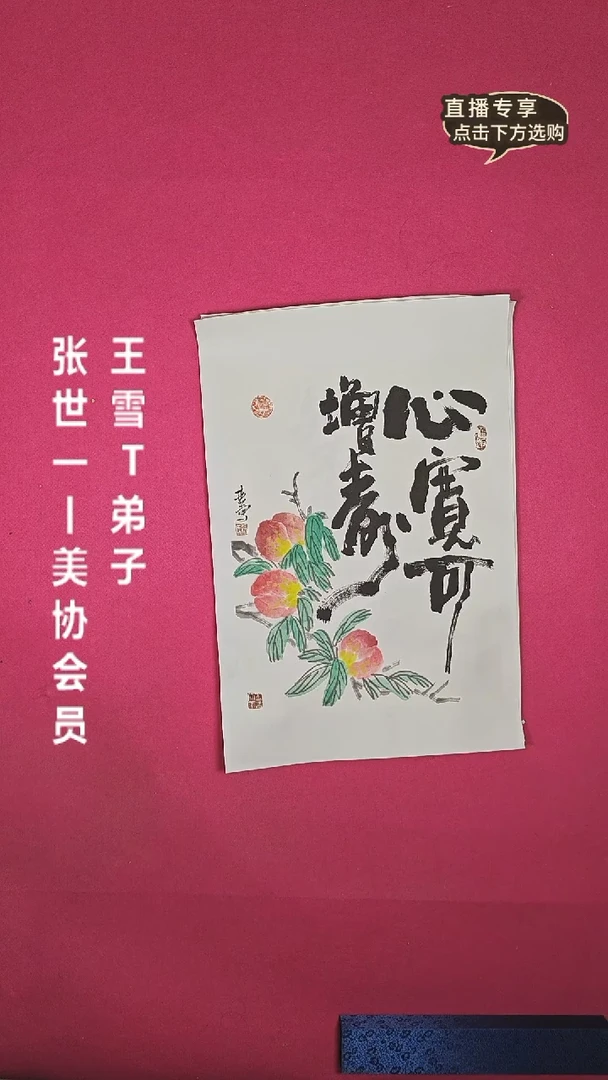 直播专享
点击下方选购
王雪T弟子
张世一一美协会员
心宽可
增寿